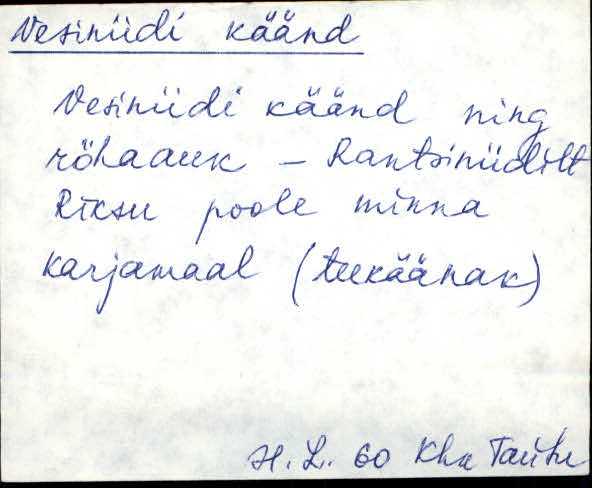 Vesiniidi käänd
Vesiniidi käänd ning
röhaauk – Rantsiniidilt
Riksu poole minna
karjamaal (teekäänak)
H. L. 60 Kha